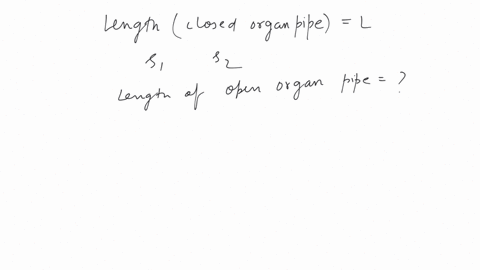 Length (closed organ pipe) = L
ρ1 ρ2
Length of open organ pipe = ?